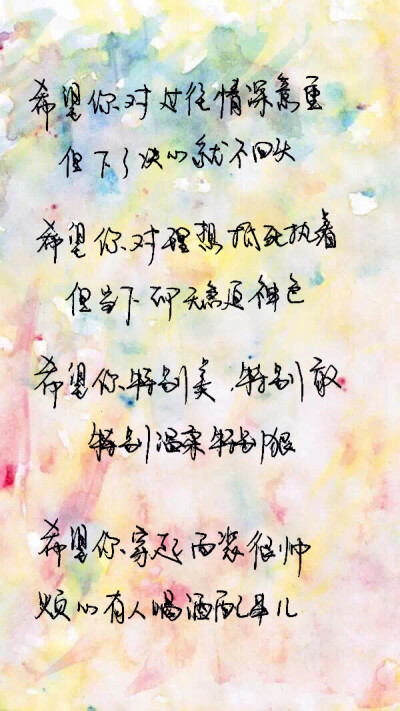 希望你对过往情深意重
但下了决心就不回头
希望你对理想抵死执着
但当下却无急迫神色
希望你特别美,特别敢
特别温柔特别狠
希望你穿起西装很帅
烦心有人喝酒配串儿